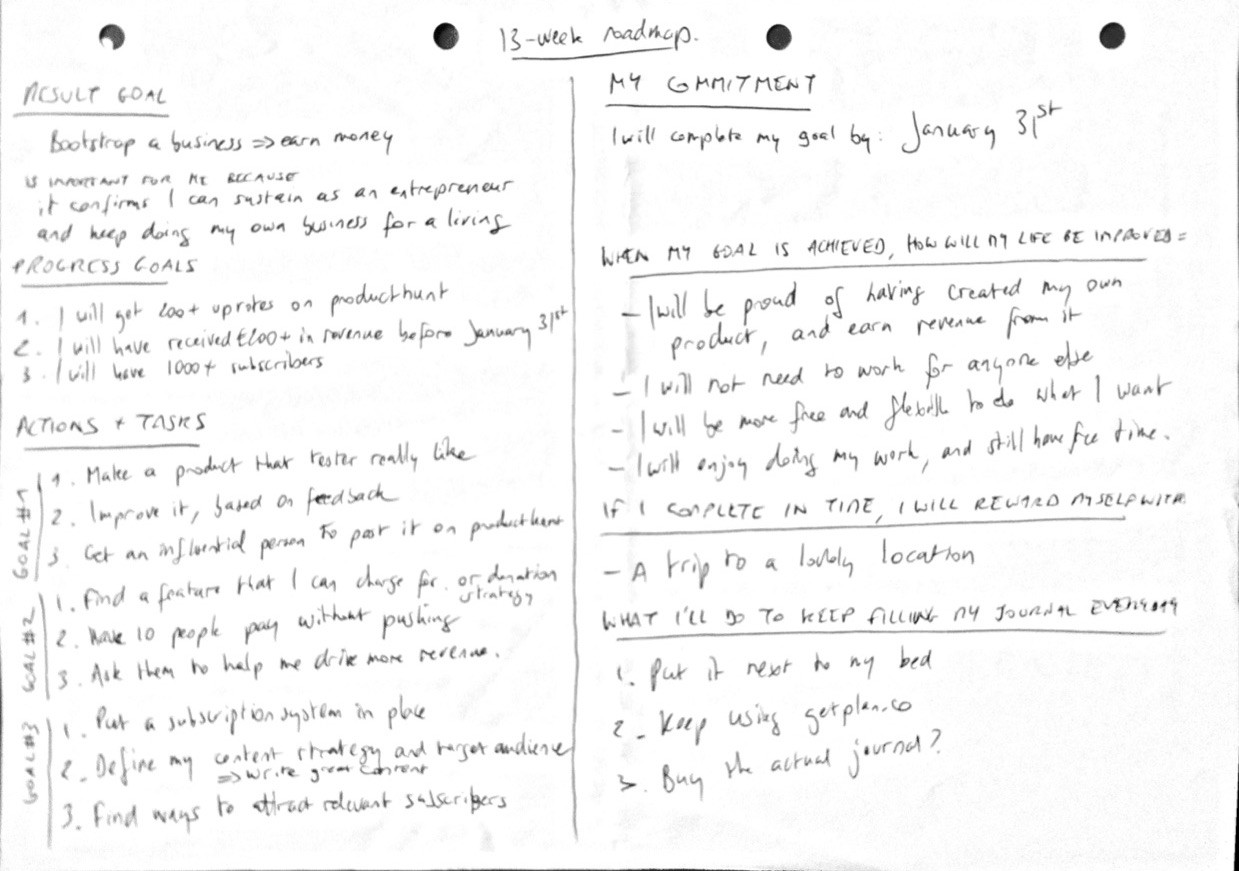 13-week roadmap.
RESULT GOAL
Bootstrap a business => earn money
IS IMPORTANT FOR ME BECAUSE
it confirms I can sustain as an entrepreneur
and keep doing my own business for a living
PROGRESS GOALS
1. I will get 200+ upvotes on producthunt
2. I will have received €200+ in revenue before January 31st
3. I will have 1000+ subscribers
ACTIONS + TASKS
GOAL #1
1. Make a product that tester really like
2. Improve it, based on feedback
3. Get an influential person to post it on producthunt
GOAL #2
1. Find a feature that I can charge for. or donation
strategy
2. Have 10 people pay without pushing
3. Ask them to help me drive more revenue.
GOAL #3
1. Put a subscription system in place
2. Define my content strategy and target audience
=> write great content
3. Find ways to attract relevant subscribers
MY COMMITMENT
I will complete my goal by: January 31st
WHEN MY GOAL IS ACHIEVED, HOW WILL MY LIFE BE IMPROVED=
- I will be proud of having created my own
product, and earn revenue from it
- I will not need to work for anyone else
- I will be more free and flexible to do what I want
- I will enjoy doing my work, and still have free time.
IF I COMPLETE IN TIME, I WILL REWARD MYSELF WITH
- A trip to a lovely location
WHAT I'LL DO TO KEEP FILLING MY JOURNAL EVERYDAY
1. Put it next to my bed
2. Keep using getplan.co
3. Buy the actual journal?